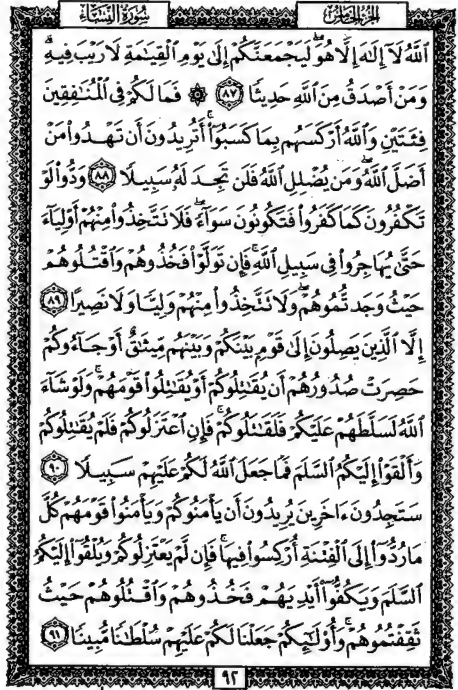 سُورَةُ النِّسَاءِ
الجُزءُ الخَامِسُ
اللَّهُ لَآ إِلَٰهَ إِلَّا هُوَۚ لَيَجْمَعَنَّكُمْ إِلَىٰ يَوْمِ الْقِيَٰمَةِ لَا رَيْبَ فِيهِۗ
وَمَنْ أَصْدَقُ مِنَ اللَّهِ حَدِيثًا ﴿٨٧﴾ ۞ فَمَا لَكُمْ فِي الْمُنَٰفِقِينَ
فِئَتَيْنِ وَاللَّهُ أَرْكَسَهُم بِمَا كَسَبُوٓا۟ۚ أَتُرِيدُونَ أَن تَهْدُوا۟ مَنْ
أَضَلَّ اللَّهُۖ وَمَن يُضْلِلِ اللَّهُ فَلَن تَجِدَ لَهُۥ سَبِيلًا ﴿٨٨﴾ وَدُّوا۟ لَوْ
تَكْفُرُونَ كَمَا كَفَرُوا۟ فَتَكُونُونَ سَوَآءًۖ فَلَا تَتَّخِذُوا۟ مِنْهُمْ أَوْلِيَآءَ
حَتَّىٰ يُهَاجِرُوا۟ فِي سَبِيلِ اللَّهِۚ فَإِن تَوَلَّوْا۟ فَخُذُوهُمْ وَاقْتُلُوهُمْ
حَيْثُ وَجَدتُّمُوهُمْۖ وَلَا تَتَّخِذُوا۟ مِنْهُمْ وَلِيًّا وَلَا نَصِيرًا ﴿٨٩﴾
إِلَّا الَّذِينَ يَصِلُونَ إِلَىٰ قَوْمٍۭ بَيْنَكُمْ وَبَيْنَهُم مِّيثَٰقٌ أَوْ جَآءُوكُمْ
حَصِرَتْ صُدُورُهُمْ أَن يُقَٰتِلُوكُمْ أَوْ يُقَٰتِلُوا۟ قَوْمَهُمْۚ وَلَوْ شَآءَ
اللَّهُ لَسَلَّطَهُمْ عَلَيْكُمْ فَلَقَٰتَلُوكُمْۚ فَإِنِ اعْتَزَلُوكُمْ فَلَمْ يُقَٰتِلُوكُمْ
وَأَلْقَوْا۟ إِلَيْكُمُ السَّلَمَ فَمَا جَعَلَ اللَّهُ لَكُمْ عَلَيْهِمْ سَبِيلًا ﴿٩٠﴾
سَتَجِدُونَ ءَاخَرِينَ يُرِيدُونَ أَن يَأْمَنُوكُمْ وَيَأْمَنُوا۟ قَوْمَهُمْ كُلَّ
مَا رُدُّوٓا۟ إِلَى الْفِتْنَةِ أُرْكِسُوا۟ فِيهَاۚ فَإِن لَّمْ يَعْتَزِلُوكُمْ وَيُلْقُوٓا۟ إِلَيْكُمُ
السَّلَمَ وَيَكُفُّوٓا۟ أَيْدِيَهُمْ فَخُذُوهُمْ وَاقْتُلُوهُمْ حَيْثُ
ثَقِفْتُمُوهُمْۚ وَأُو۟لَٰٓئِكُمْ جَعَلْنَا لَكُمْ عَلَيْهِمْ سُلْطَٰنًا مُّبِينًا ﴿٩١﴾
٩٢